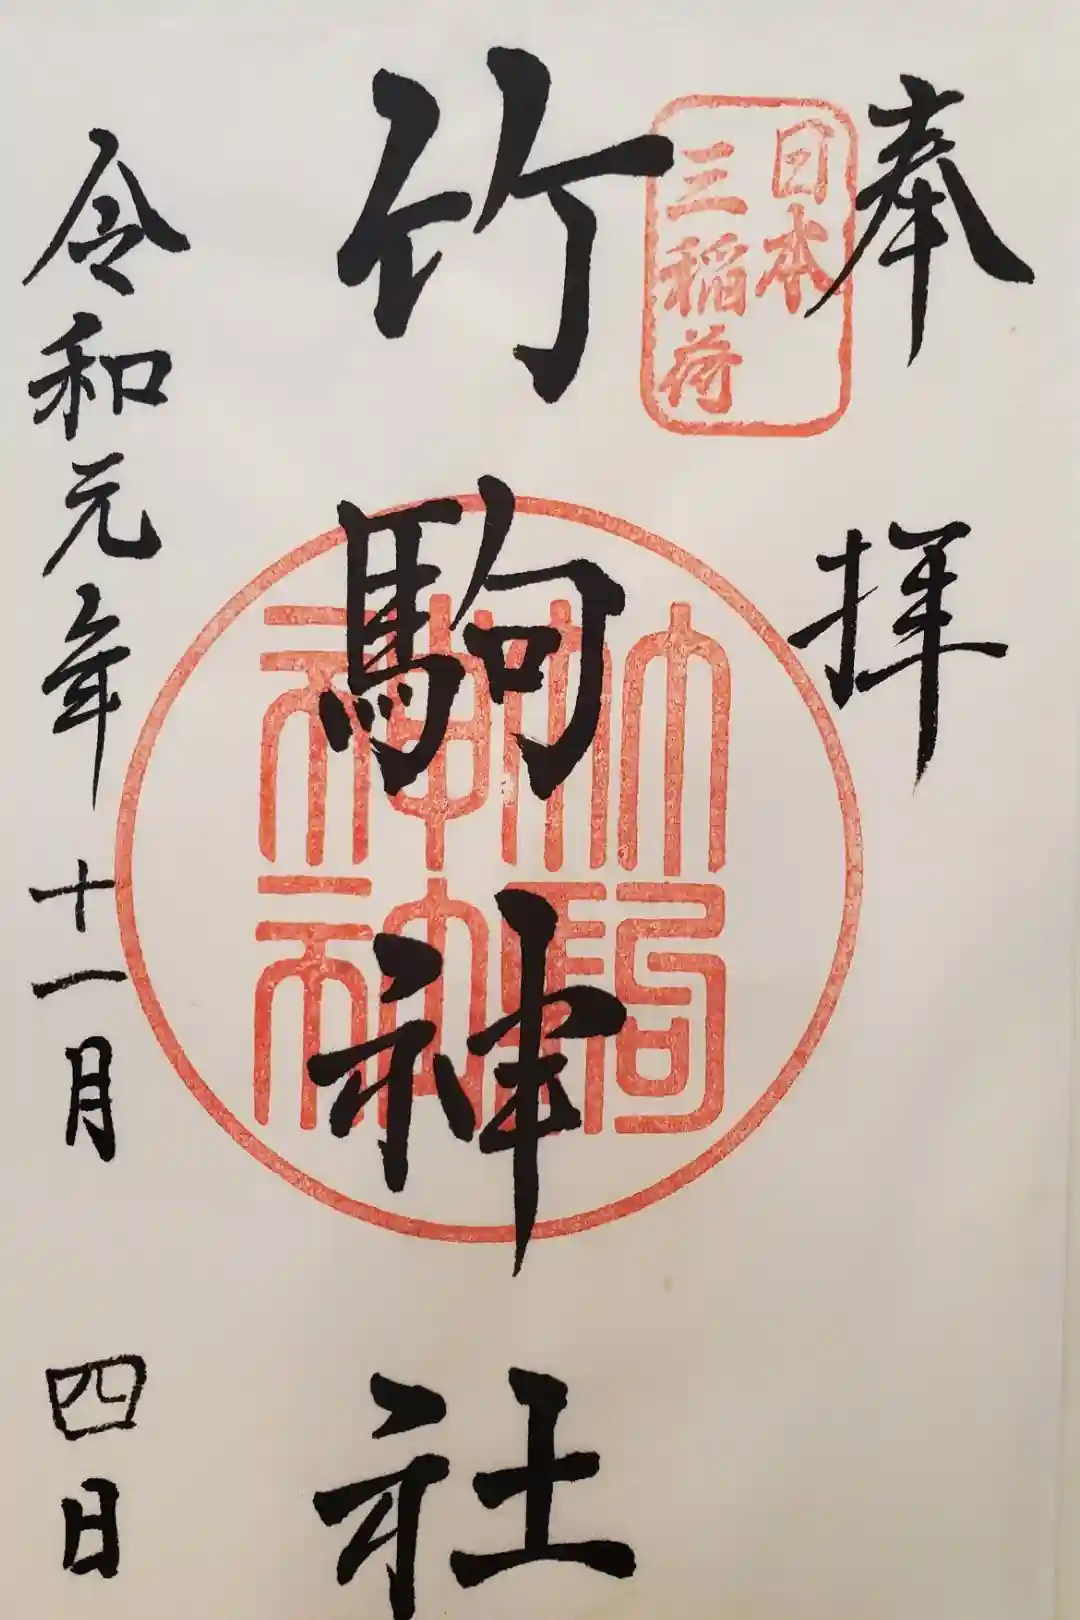 奉拝
日本
三稲荷
竹駒神社
竹駒
神社
令和元年十一月四日